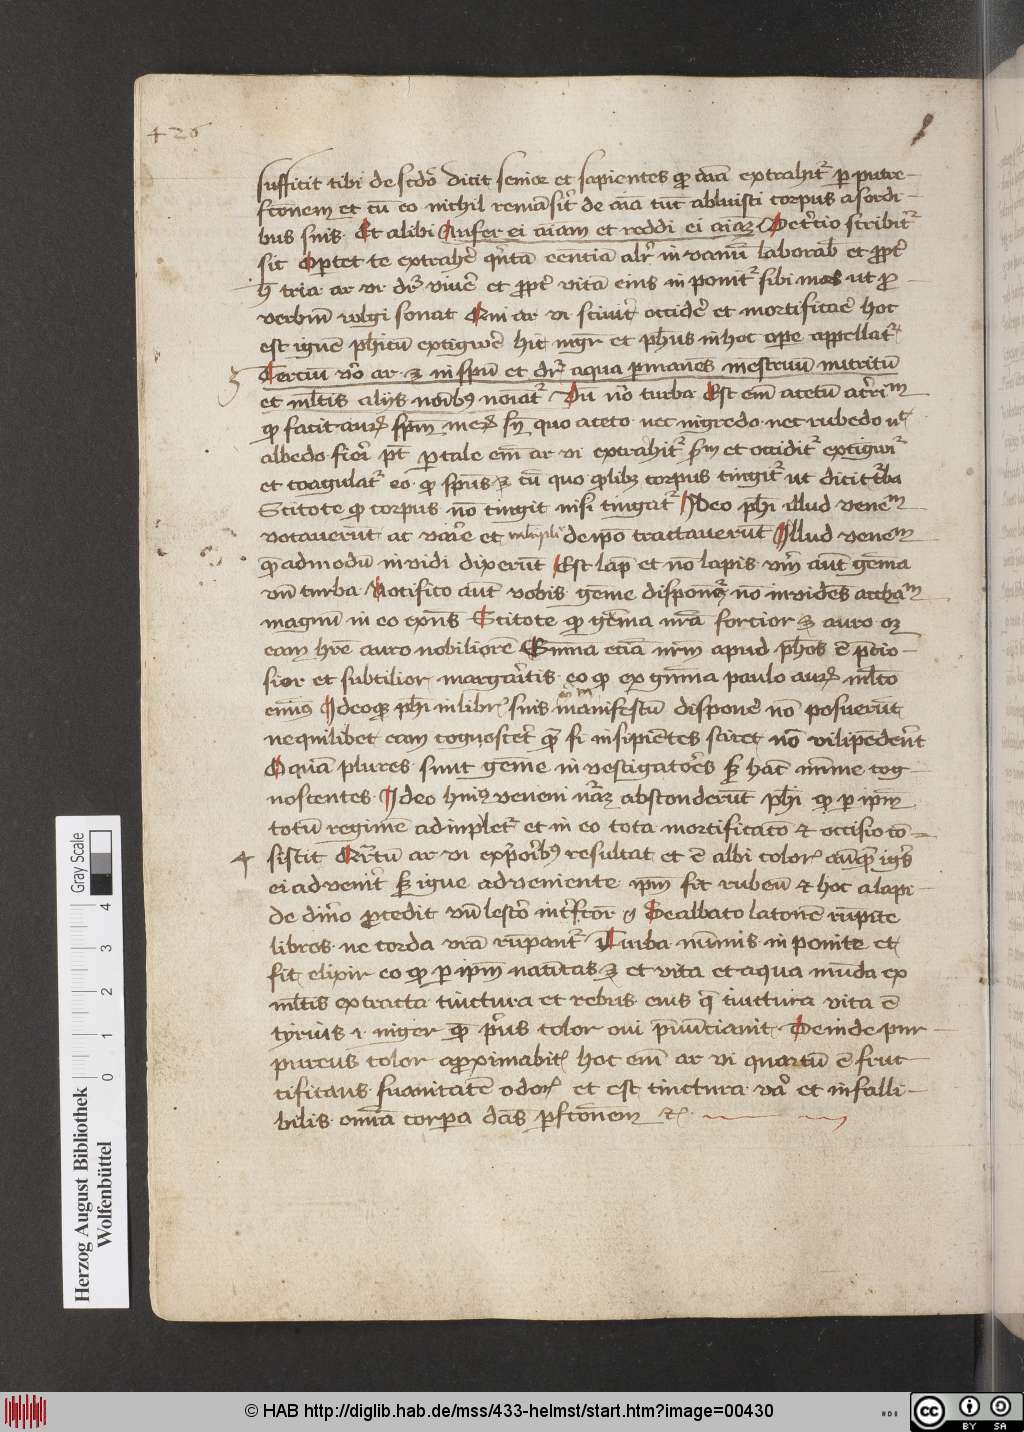 426
sufficit tibi de scđo dicit senior et sapientes qp aīa extrahit᷑ p putre-
fctōnem et cū eo nichil remāsit de aīa tūc abluisti corpus a sordi-
bus suis Et alibi Aufer ei aīam et reddi ei aīaz De t̾cio scribit᷑
sic Oportet te extrahe̾ qn̄tā eēntiā alr̄ in vanū laborab et ppt̾
h tria ar vi dr̄ vive̾ et ppt̾ vitā eius in ponit᷑ sibi mōs ut p
verbiū wlgi sonat Qui ar vi sciuit occide̾ et mortificare hoc
est ignē phicū extigwe̾ hic mgr̄ et phūs in hoc ope appellat᷑
3 Terciū vo ar ꝫ in spū et dr̄ aqua pmanēs mēstruū nutritū
et mltis aliis noībꝰ noīat᷑ Dn̄ vo turba Est em̄ acetū acrim
qp facit aurꝫ spm̄ merꝫ sn̄ quo aceto nec nigredo nec rubedo nec
albedo fieri pt p tale em̄ ar vi extrahit᷑ sm et occidit᷑ extigwit᷑
et coagulat᷑ eo qp spūs ꝫ cū quo qlibꝫ corpus tingit᷑ ut dicit t̾ba
Scitote qp corpus nō tingit nisi tingat᷑ Ideo phi illud venem
vocauerūt ac varie et mltiplr de ipo tractauerūt Illud venem
qadmodū invidi dixerūt Est lap et nō lapis vm̄ aut gēma
vn̄ turba Notifico aut vobis gēme disponēꝫ nō invidēs atthaᵐ
magnū in eo exn̄s Scitote qp gēma nr̄a forcior ꝫ auro oꝫ
eam hr̄e auro nobiliorē Gūma eciā nr̄m apud phos ē pcio-
sior et subtilior margaritis eo qp ex gūma paulo aurꝫ mlto
emim⁹ Ideoqꝫ phi in libr suis manifestū dispone̾ nō posuerūt
ne quilibet eam cognoscet̾ q̄ si insipiētes sciret nō vilipēderet
O quā plures sunt gēme investigatores sꝫ hāc mīme cog-
noscentes Ideo huiꝰ veneni n̄aꝫ absconderūt phi qp p ipm̄
totū regimē adimplet᷑ et in eo tota mortificatō ⁊ occisio cō-
4 sistit Qr̄tū ar vi ex porībꝰ resultat et ē albi color auqp ig̾s
ei advenit sꝫ igne adveniente ipm̄ fit rubeū ⁊ hoc a lapi-
de dīo pcedit vn̄ lecto int̾fctor 9 Dealbato latonē rūpite
libros ne corda vra rūpant᷑ Turba nūmis in ponite et
fit elixir eo qp p ipm̄ natītas ꝫ et vita et aqua mūda ex
mltis extracta tinctura et rebus eius q̄ tinctura vita ē
tyrius i niger qp p̾us color oui pnūctiauit Deinde pur
pureus color aproximabit᷑ hoc em̄ ar vi quartū ē fruc-
tificans suauitatē odor et est tinctura va̾ et infalli-
bilis omīa corpa dās pfctōnem ⁊c
Herzog August Bibliothek
Wolfenbüttel
Gray Scale
0 1 2 3 4
© HAB http://diglib.hab.de/mss/433-helmst/start.htm?image=00430
HAB
cc BY SA